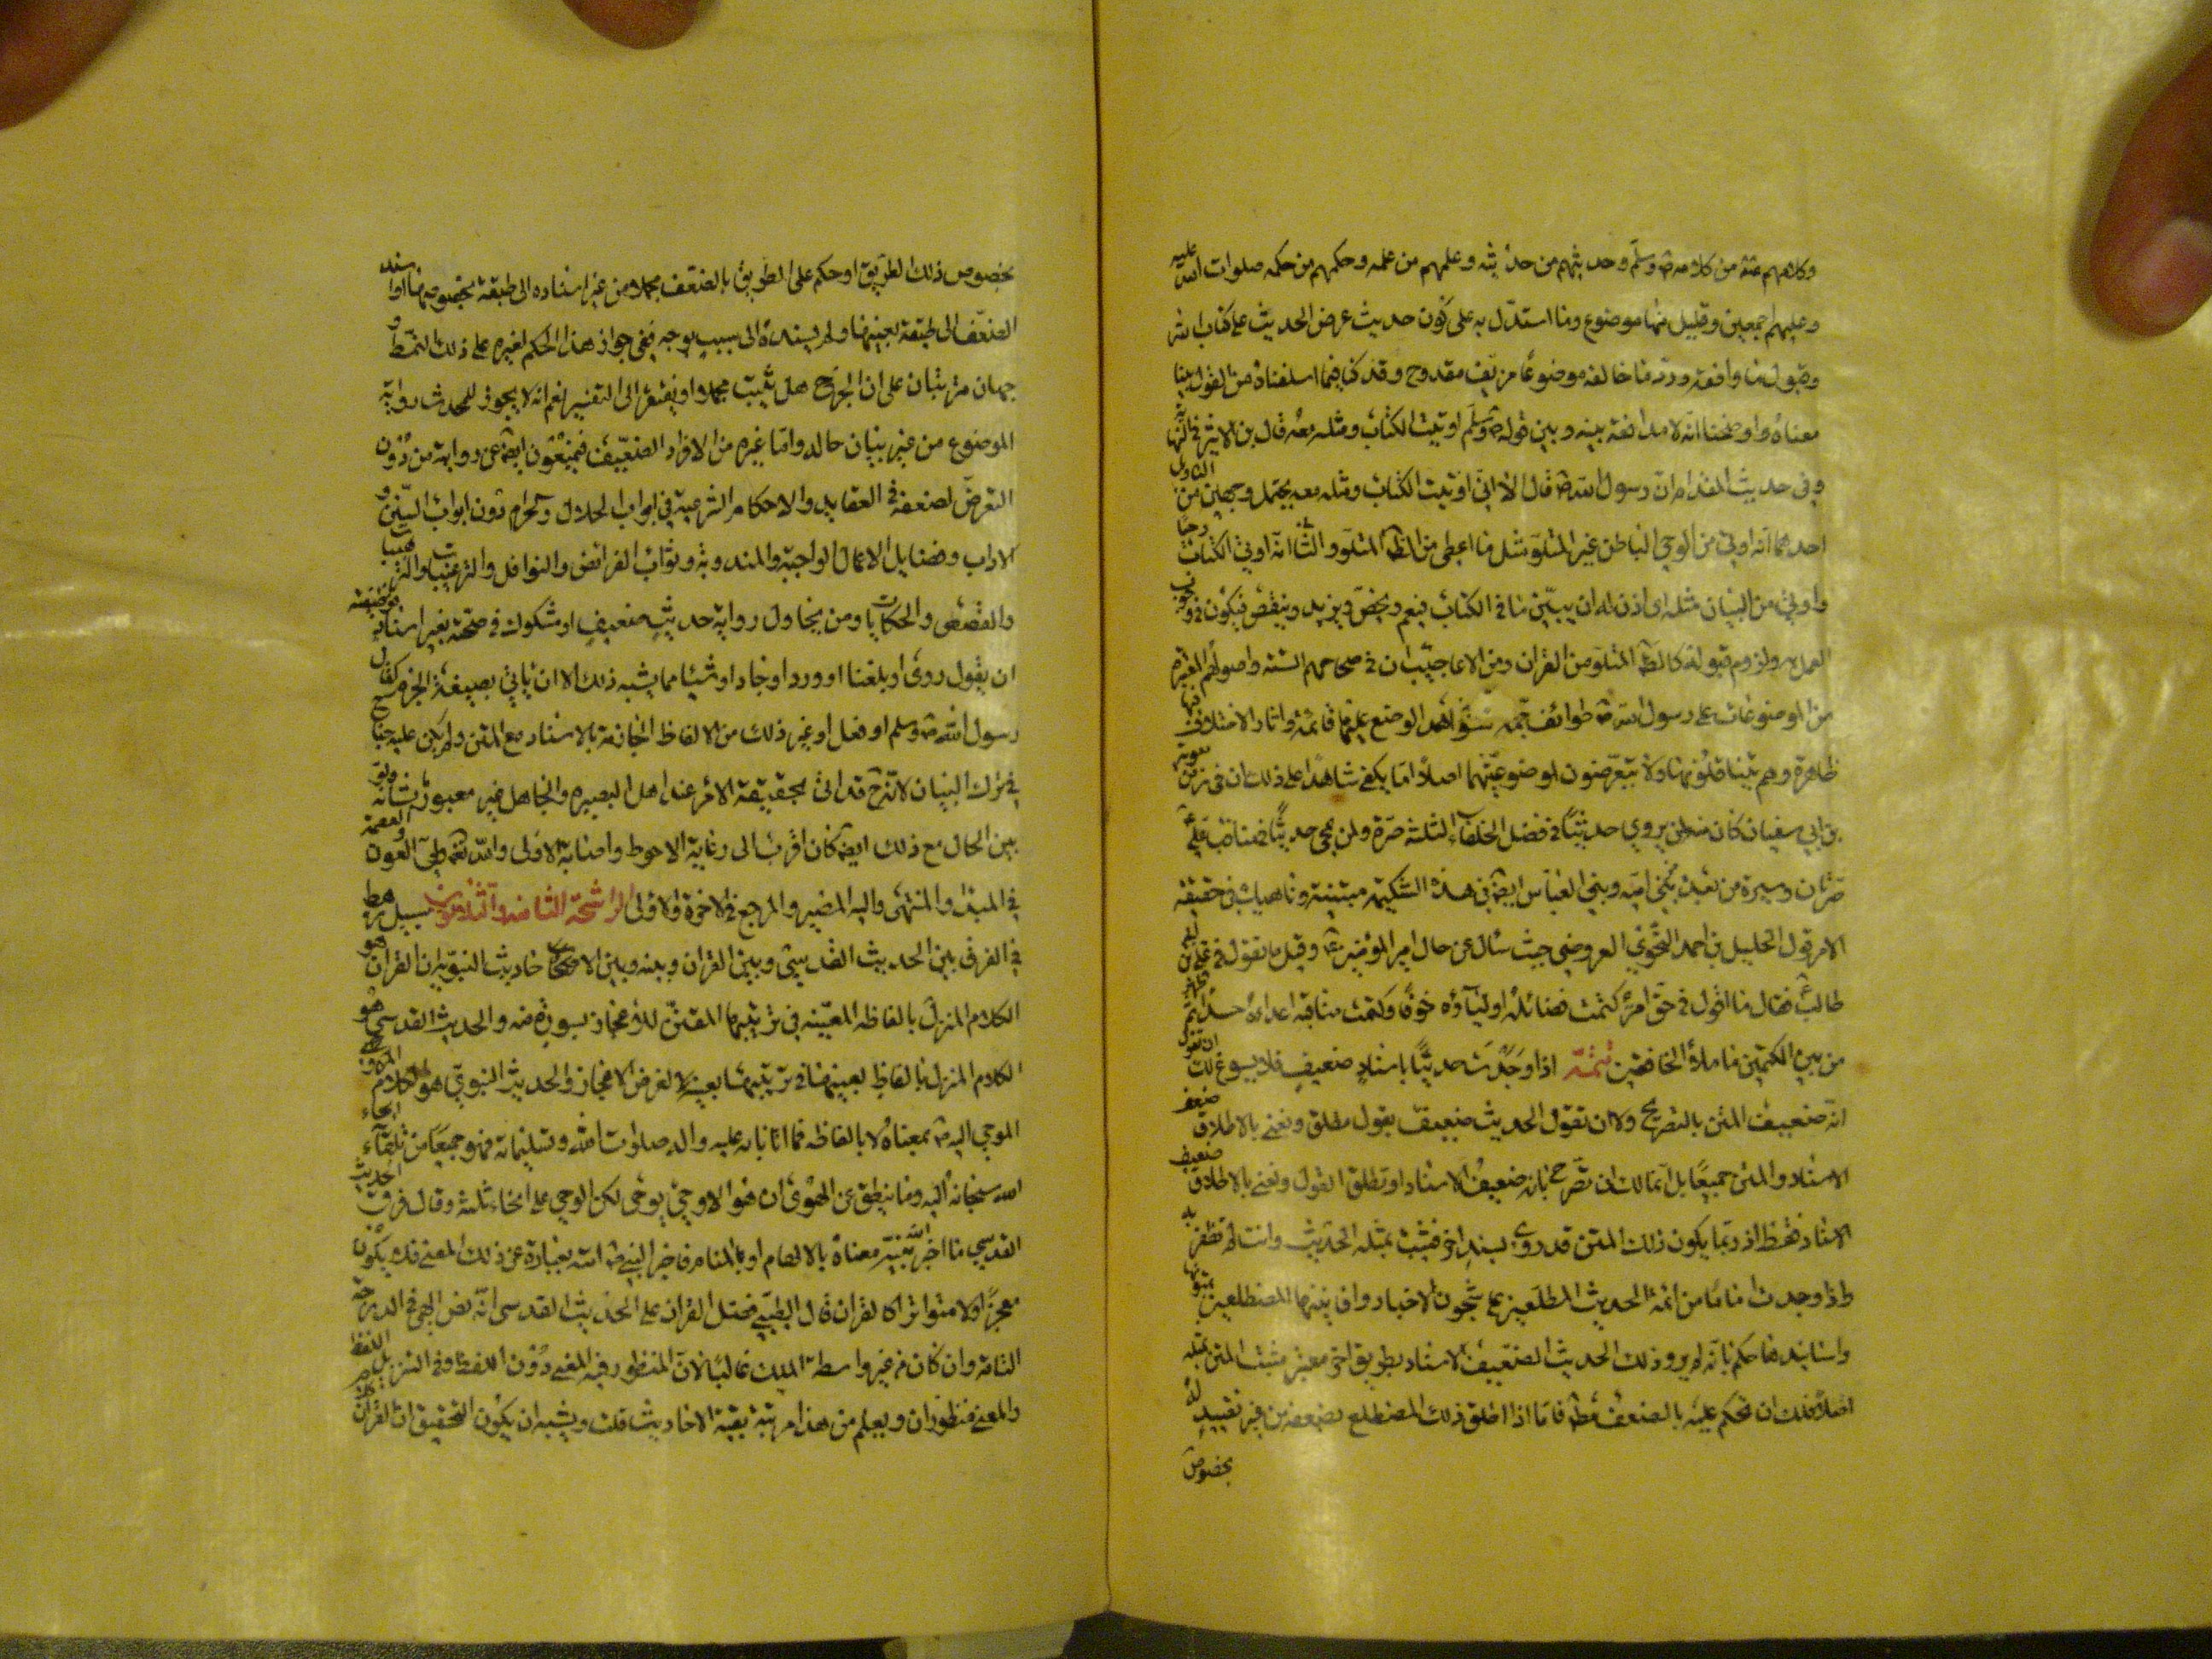 وكلامهم عنه من كلامه ص وسلم وحديثهم من حديثه وعلمهم من علمه وحكمهم من حكمه صلوات الله عليه
وعليهم اجمعين وقليل منها موضوع وما استدل به على كون حديث عرض الحديث على كتاب الله
وقبول ما وافقه ورد ما خالفه موضوعا مزيف مقدوح وقد كنا فيما اسلفناه من القول بينا
معناه واوضحنا انه لا مدافعة بينه وبين قوله ص وسلم اوتيت الكتاب ومثله معه قال بن الاثير في
وفي حديث المقدام ان رسول الله ص قال الا اني اوتيت الكتاب ومثله معه يحتمل وجهين من التاويل
احدهما انه اوتي من الوحي الباطن غير المتلو مثل ما اعطي من الظ المتلو والثا انه اوتي الكتاب وحيا
واوتي من البيان مثله اى اذن له ان يبين ما في الكتاب فيعم ويخص ويزيد وينقص فيكون في وجوب
العمل به ولزوم قبوله كالظ المتلو من القران ومن الاعاجيب ان في صحاحهم الستة واصولهم المعتبرة
من الموضوعات على رسول الله ص طوائف جمة شواهد الوضع عليها قائمة واثار الاختلاق فيها
ظاهرة وهم يتناقلونها ولا يتعرضون لموضوعيتها اصلا اما يكفي شاهدا على ذلك ان في زمن معوية
بن ابي سفيان كان من يروي حديثا في فضل الخلفاء الثلثة صرة ولمن يجي حديثا في مناقب علي ع
صرتان وسيرة من بعده بني امية وبني العباس ايضا في هذه الشكيمة مبينة وناهيك في حقيقة
الامر قول الخليل بن احمد النحوي العروضي حيث سئل عن حال امير المؤمنين ع وقيل ما تقول في علي بن ابي
طالب ع فقال ما اقول في حق امرء كتمت فضائله اولياؤه خوفا وكتمت مناقبه اعداؤه حسدا ثم ظهر
من بين الكتمين ما ملأ الخافقين تتمة اذا وجدت حديثا باسناد ضعيف فلا يسوغ لك ان تقول
انه ضعيف المتن بالتصريح ولا ان تقول الحديث ضعيف بقول مطلق وتعني بالاطلاق ضعف
الاسناد والمتن جميعا بل انما لك ان تصرح بانه ضعيف الاسناد او تطلق القول وتعني بالاطلاق ضعيف
الاسناد فقط اذ ربما يكون ذلك المتن قد روي بسند اخر فيثبت بمثله الحديث وانت لم تظفر به
واذا وجدت اماما من ائمة الحديث المطلعين على شجون الاخبار وافانينها المضطلعين بمتونها
واسانيدها حكم بانه لم يرو ذلك الحديث الضعيف الاسناد بطريق اخر معتبر مثبت المتن بمثله
اصلا فلك ان تحكم عليه بالضعف مط فاما اذا اطلق ذلك المضطلع تضعيفه من غير تقييد له
بخصوص
بخصوص ذلك الطريق او حكم على الطريق بالضعف مجملا من غير اسناده الى طبقة بخصوصها او اسند
الضعف الى طبقة بعينها ولم يسنده الى سبب يوجبه ففي جواز هذا الحكم لغيره على ذلك النمط و
جهان مترتبان على ان الجرح هل يثبت مجملا او يفتقر الى التفسير نعم انه لا يجوز للمحدث رواية
الموضوع من غير بيان حاله واما غيره من الافراد الضعيف فيمنعون ايضا عن روايته من دون
التعرض لضعفه في العقايد والاحكام الشرعية في ابواب الحلال والحرام دون ابواب السنن و
الاداب وفضايل الاعمال الواجبة والمندوبة وثواب الفرائض والنوافل والترغيبات والترهيبات
والقصص والحكايات ومن يحاول رواية حديث ضعيف او مشكوك في صحته بغير اسناد
ان يقول روى او بلغنا او ورد او جاء او شيئا مما يشبه ذلك الا ان ياتي بصيغة الجزم كقال
رسول الله ص وسلم او فعل او غير ذلك من الالفاظ الجازمة بالاسناد مع المتن ولم يكن عليه جناح
في ترك البيان لانه ح قد اتى بحقيقة الامر عند اهل البصيرة والجاهل غير معبوء بشانه ولو
بين الحال مع ذلك ايضا كان اقرب الى رعاية الاحوط واصابة الاولى والله تعالى ولي العون والعصمة
في المبدا والمنتهى واليه المصير والمرجع في الاخرة والاولى الراشحة الثامنة والثلاثون سبيل رهط
في الفرق بين الحديث القدسي وبين القران وبينه وبين الاحاديث النبوية ان القران هو
الكلام المنزل بالفاظه المعينة في ترتيبها المعين للاعجاز بسورة منه والحديث القدسي هو
الكلام المنزل بالفاظ بعينها في ترتيبها بعينه لا لغرض الاعجاز والحديث النبوي هو الكلام
الموحي اليه ص بمعناه لا بالفاظه فما اتانا به عليه واله صلوات الله وتسليماته فهو جميعا من تلقاء ايحاء
الله سبحانه اليه وما ينطق عن الهوى ان هو الا وحي يوحى لكن الوحي على انحاء ثلثة وقال فرق الحديث
القدسي ما اخبر الله نبيه معناه بالالهام او بالمنام فاخبر النبي ص امته بعبارة عن ذلك المعنى فلا يكون
معجزا ولا متواترا كالقران قال الطيبي فضل القران على الحديث القدسي انه نص الهي في الدرجة
الثانية وان كان من غير واسطة الملك غالبا لان المنظور فيه المعنى دون اللفظ وفي التنزيل اللفظ
والمعنى منظوران ويعلم من هذا مرتبة بقية الاحاديث قلت ويشبه ان يكون التحقيق ان القران كلام